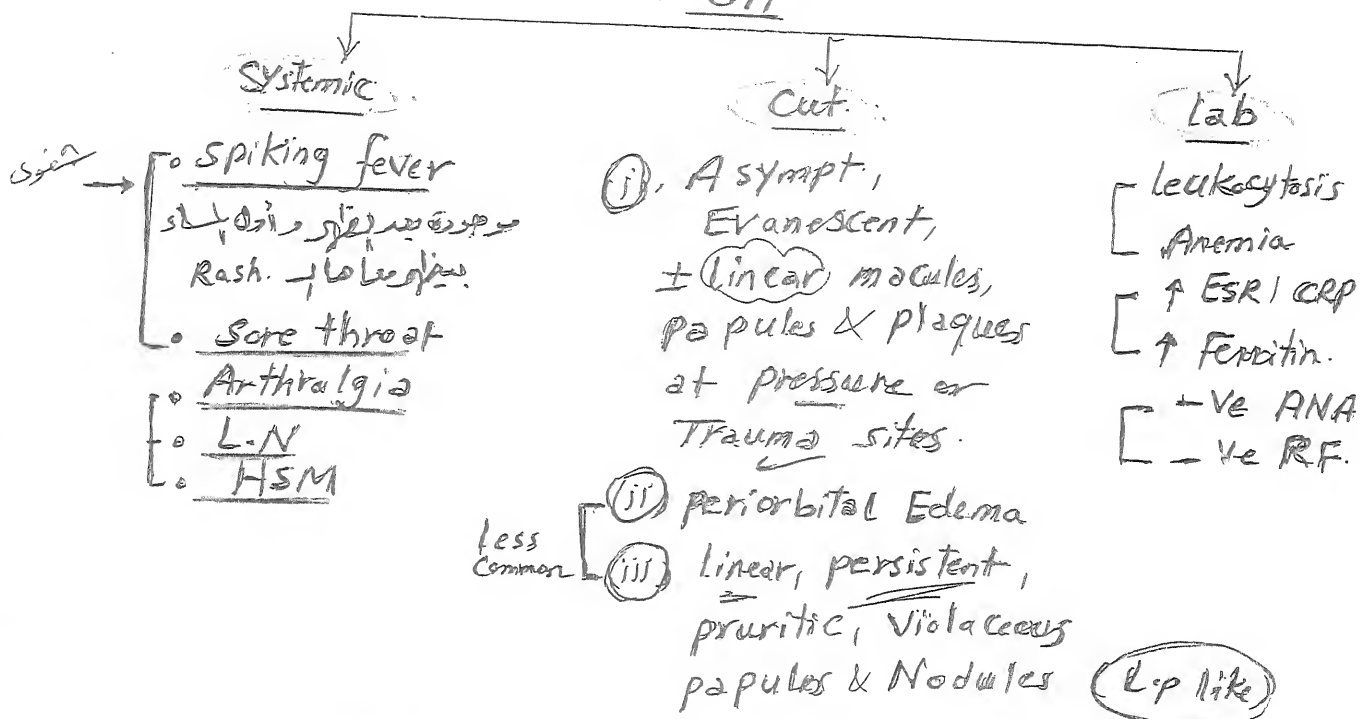 Systemic
شفوى
• Spiking fever
موجودة بعد الظهر وأول المساء
Rash.
• Sore throat
• Arthralgia
• L.N
• HSM
Cut.
(i), Asympt.,
Evanescent,
± linear macules,
papules & plaques
at pressure or
Trauma sites.
less common
(ii) periorbital Edema
(iii) linear, persistent,
pruritic, Violaceous
papules & Nodules (L.p like)
Lab
Leukocytosis
Anemia
↑ ESR / CRP
↑ Ferritin.
-Ve ANA
- Ve RF.